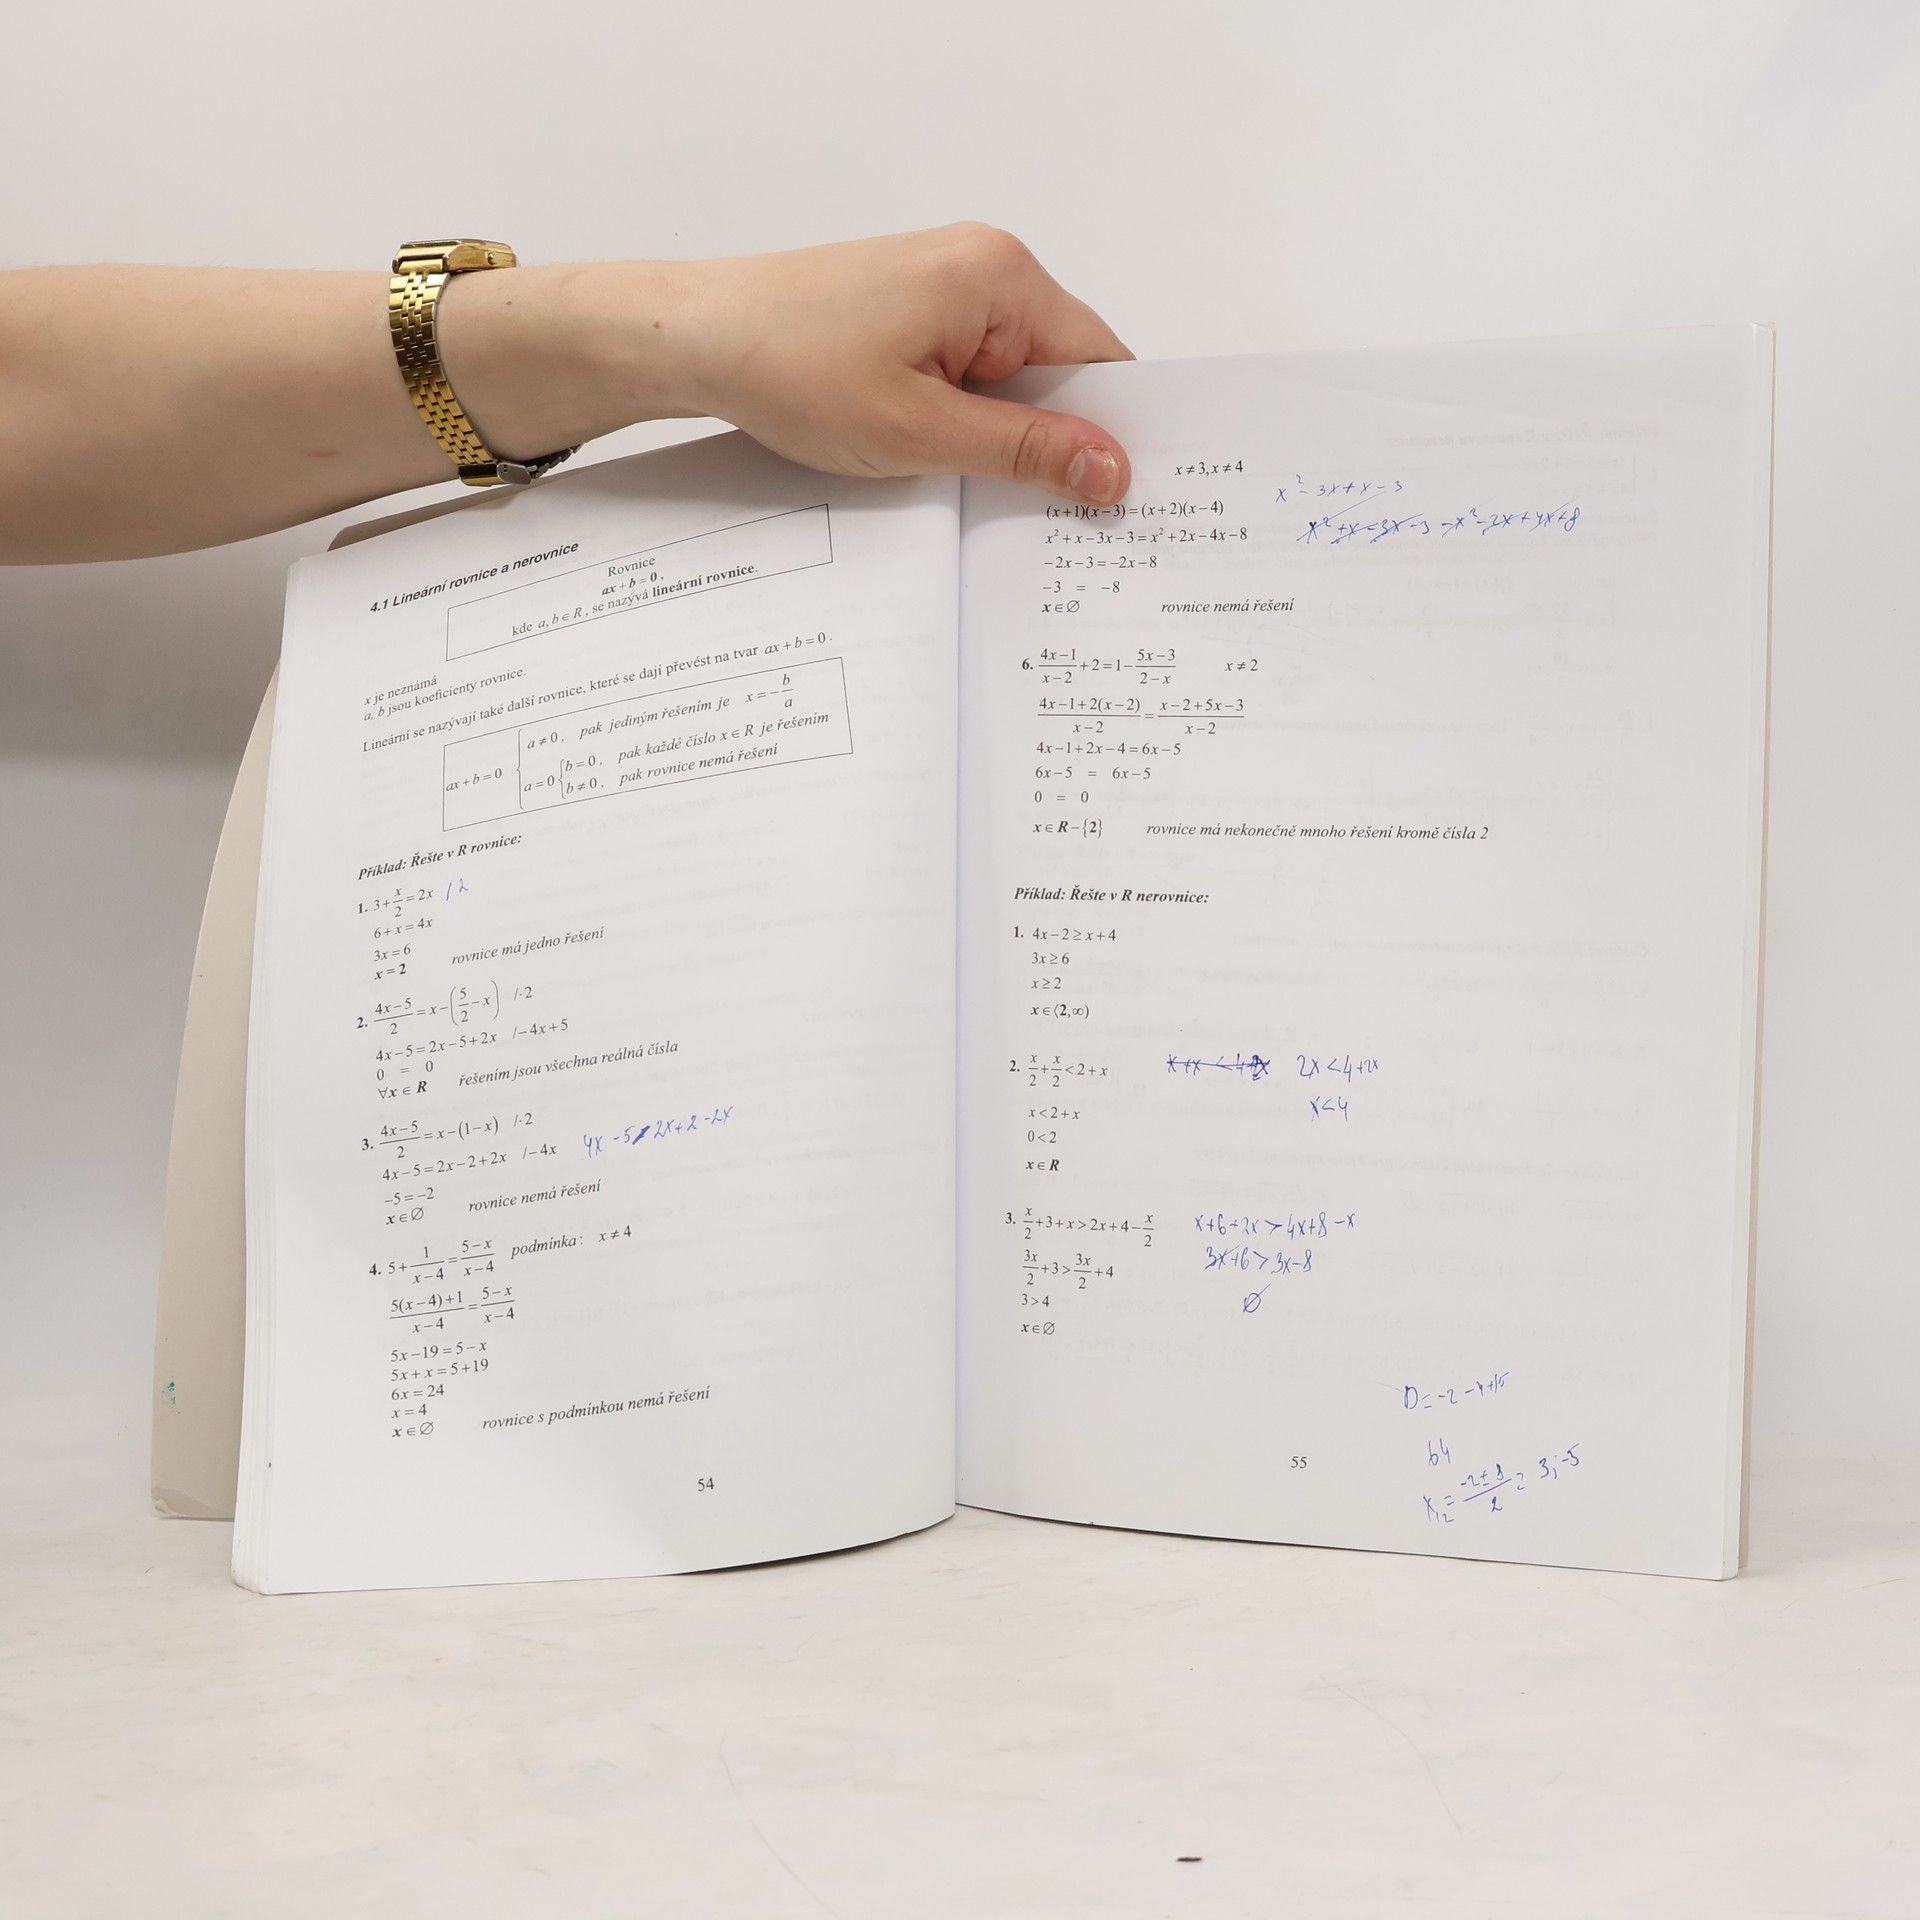 4.1 Lineární rovnice a nerovnice
Rovnice
ax + b = 0,
kde a, b ∈ R, se nazývá lineární rovnice.
x je neznámá
a, b jsou koeficienty rovnice.
Lineární se nazývají také další rovnice, které se dají převést na tvar ax + b = 0.
ax + b = 0
a ≠ 0, pak jediným řešením je x = -b/a
a = 0 { b = 0, pak každé číslo x ∈ R je řešením
b ≠ 0, pak rovnice nemá řešení
Příklad: Řešte v R rovnice:
1. 3 + x/2 = 2x /2
6 + x = 4x
3x = 6
x = 2 rovnice má jedno řešení
2. (4x-5)/2 = x - (5/2 - x) /·2
4x - 5 = 2x - 5 + 2x /-4x+5
0 = 0
∀x ∈ R řešením jsou všechna reálná čísla
3. (4x-5)/2 = x - (1-x) /·2
4x - 5 = 2x - 2 + 2x /-4x 4x - 5 2x + 2 - 2x
-5 = -2
x ∈ ∅ rovnice nemá řešení
4. 5 + 1/(x-4) = (5-x)/(x-4) podmínka: x ≠ 4
(5(x-4)+1)/(x-4) = (5-x)/(x-4)
5x - 19 = 5 - x
5x + x = 5 + 19
6x = 24
x = 4
x ∈ ∅ rovnice s podmínkou nemá řešení
54
x ≠ 3, x ≠ 4
x² - 3x + x - 3
(x+1)(x-3) = (x+2)(x-4)
x² + x - 3x - 3 - x² - 2x + 4x + 8
x² + x - 3x - 3 = x² + 2x - 4x - 8
-2x - 3 = -2x - 8
-3 = -8
x ∈ ∅ rovnice nemá řešení
6. (4x-1)/(x-2) + 2 = 1 - (5x-3)/(2-x) x ≠ 2
(4x-1+2(x-2))/(x-2) = (x-2+5x-3)/(x-2)
4x - 1 + 2x - 4 = 6x - 5
6x - 5 = 6x - 5
0 = 0
x ∈ R - {2} rovnice má nekonečně mnoho řešení kromě čísla 2
Příklad: Řešte v R nerovnice:
1. 4x - 2 ≥ x + 4
3x ≥ 6
x ≥ 2
x ∈ ⟨2, ∞)
2. x/2 + x/2 < 2 + x x + x < 4 + 2x 2x < 4 + 2x
x < 4
x < 2 + x
0 < 2
x ∈ R
3. x/2 + 3 + x > 2x + 4 - x/2 x + 6 + 2x > 4x + 8 - x
3x/2 + 3 > 3x/2 + 4 3x + 6 > 3x - 8
3 > 4 ∅
x ∈ ∅
D = -2 - 4 + 15
64
x₁₂ = (-2 ± 8)/2 = 3; -5
55